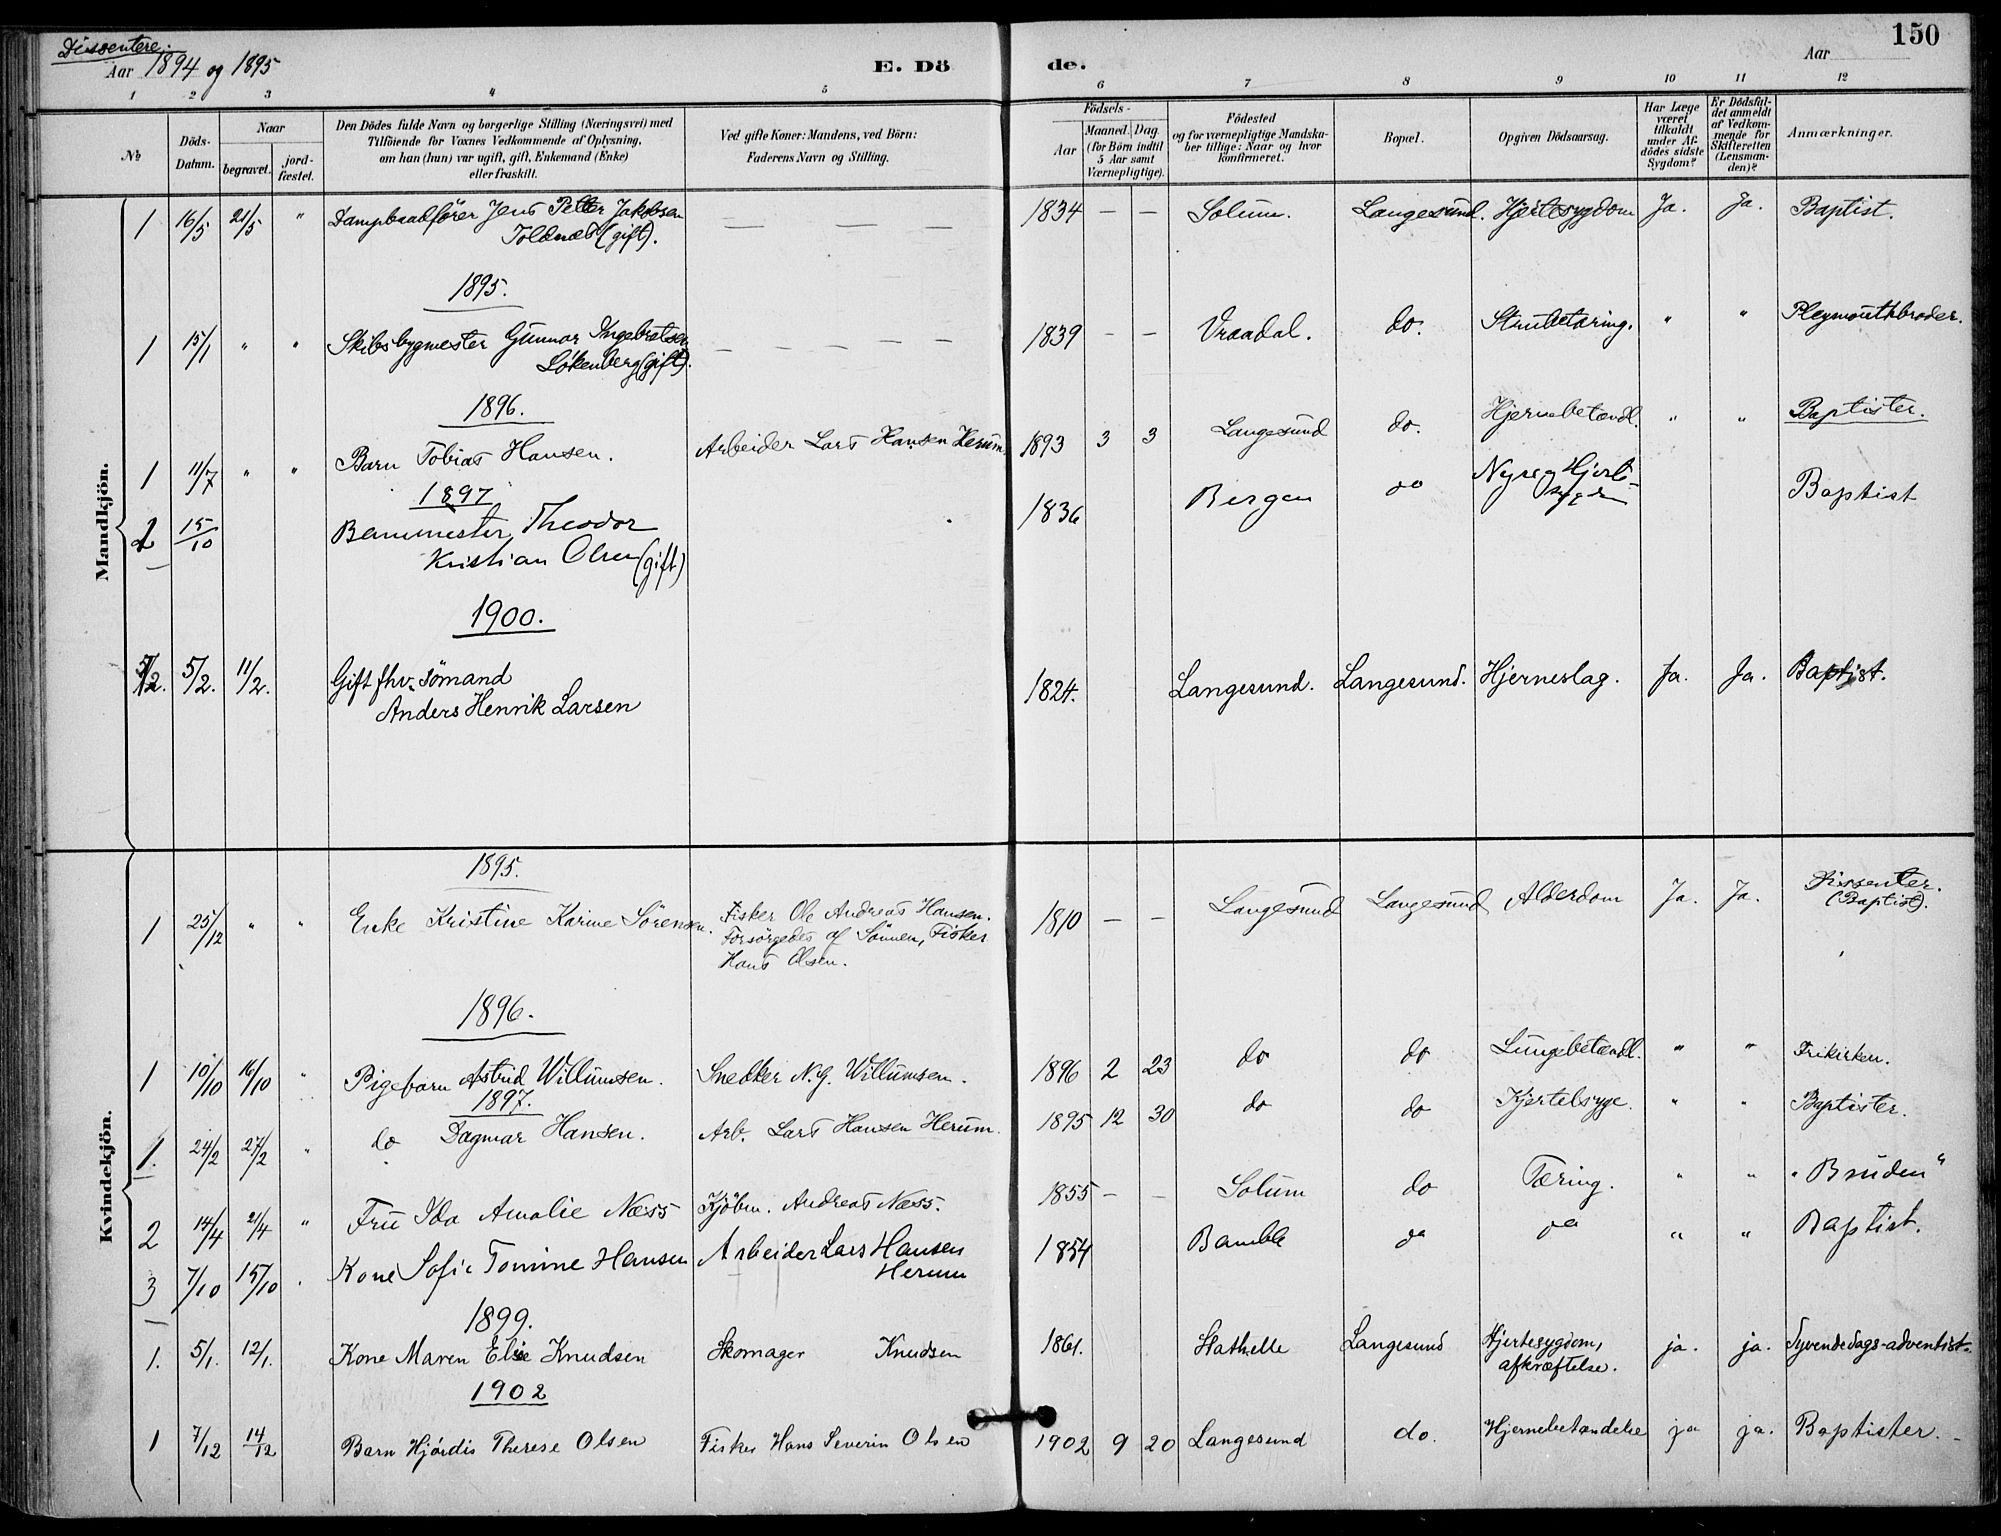 Dissentere.
150
Aar 1894 og 1895
E. Dö
de.
Aar
1 2 3 4 5 6 7 8 9 10 11 12
№
Döds-Datum.
Naar
begravet.
jord-fæstet.
Den Dödes fulde Navn og borgerlige Stilling (Næringsvei) med
Tilföiende for Voxnes Vedkommende af Oplysning,
om han (hun) var ugift, gift, Enkemand (Enke)
eller fraskilt.
Ved gifte Koner: Mandens, ved Börn:
Faderens Navn og Stilling.
Födsels-
Aar
Maaned. Dag.
(for Börn indtil
5 Aar samt
Værnepligtige).
Födested
og for værnepligtige Mandska-
ber tillige: Naar og hvor
konfirmeret.
Bopæl.
Opgiven Dödsaarsag.
Har Læge
været
tilkaldt
under Af-
dödes sidste
Sygdom?
Er Dödsfal-
det anmeldt
af Vedkom-
mende for
Skifteretten
(Lensman-
den)?
Anmærkninger.
Mandkjön.
1 16/5 21/5 " Dampbaadfører Jens Petter Jakobsen — — — — 1834 — — Solum. Langesund. Hjertesygdom Ja. Ja. Baptist.
Toldnæs (gift).
1895.
1 15/1 " " Skibsbygmester Gunnar Ingebretsen — — — — — — 1839 — — Vraadal. do. Strubetæring. " " Pleymouthbroder.
Løkenberg (gift).
1896.
1 11/7 " " Barn Tobias Hansen. Arbeider Lars Hansen Herum. 1893 3 3 Langesund do. Hjernebetændl. " " Baptister.
1897
15/10 Theodor 1836 Bergen do Nyre og Hjerte- Baptist
sygdom
Kristian Olsen (gift)
1900.
5/2. 11/2. Gift fhv. sömand 1824. Langesund. Langesund. Hjerneslag. Ja. Ja. Baptist.
Anders Henrik Larsen
Kvindekjön.
1895.
1 25/12 " " Enke Kristine Karine Sörensen. Fisker Ole Andreas Hansen. 1810 — — Langesund Langesund Alderdom Ja. Ja. Dissenter.
Forsörgedes af Sönnen, Fisker (Baptist).
Hans Olsen.
1896.
1 10/10 16/10 " Pigebarn Astrid Willumsen. Snedker N. G. Willumsen. 1896 2 23 do do Lungebetændl. " " Frikirken.
1897.
1. 24/2 27/2 " do Dagmar Hansen. Arb. Lars Hansen Herum. 1895 12 30 do do Kjertelsyge. " " Baptister.
2 14/4 21/4 " Fru Ida Amalie Næss Kjöbm. Andreas Næss. 1855 — — Solum do Tæring. " " "Bruden"
3 7/10 15/10 . Kone Sofie Tomine Hansen Arbeider Lars Hansen 1854 Bamble do do " " Baptist.
Herum
1899.
1. 5/1. 12/1. Kone Maren Elise Knudsen Skomager Knudsen 1861. Stathelle Langesund Hjertesygdom, ja. ja. Syvendedags-adventist.
afkræftelse.
1902
1 7/12 14/12 Barn Hjördis Therese Olsen Fisker Hans Severin Olsen 1902 9 20 Langesund do. Hjernebetændelse ja ja. Baptister.